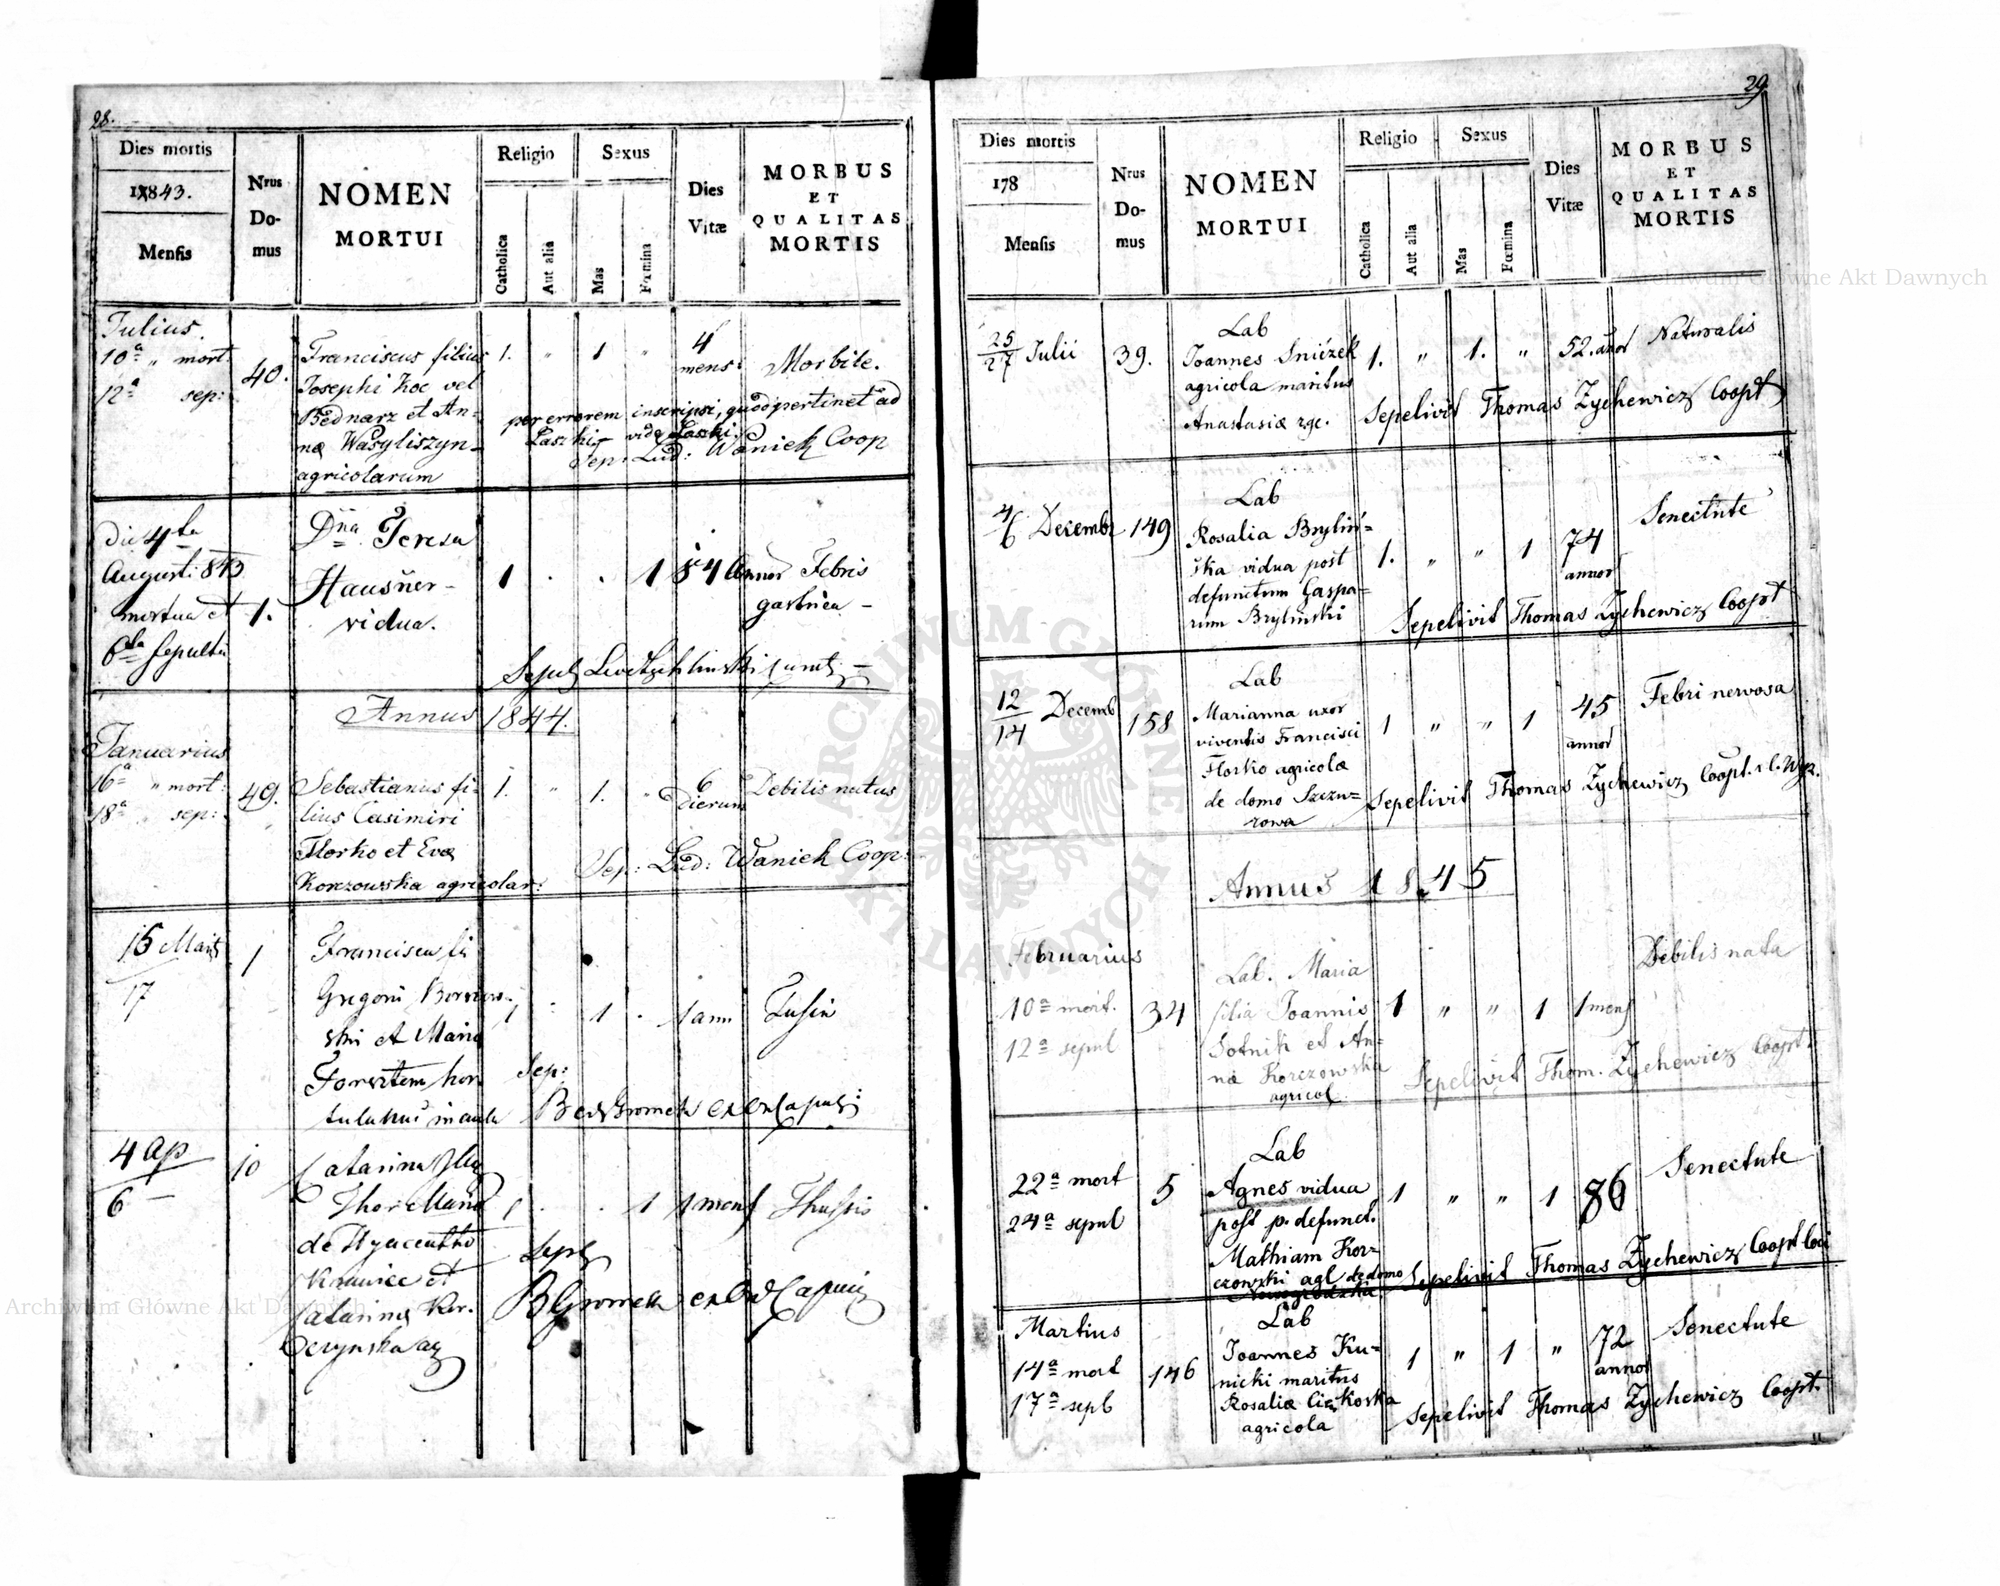 28.
Dies mortis
1843.
Mensis
Nrus
Do-
mus
NOMEN
MORTUI
Religio
Catholica
Aut alia
Sexus
Mas
Fœmina
Dies
Vitæ
MORBUS
ET
QUALITAS
MORTIS
Julius.
10ª " mort:
12ª sep:
40.
Franciscus filius
Josephi Koc vel
Bednarz et An-
næ Wasyliszyn
agricolarum
1. " 1 "
4
mens:
Morbile.
per errorem inscripsi, quod pertinet ad
Laszki vide Laszki.
Sep: Lud: Waniek Coop
Die 4ta
Augusti 843
mortua et
6ta sepulta
1.
Dña Teresa
Hausner
vidua.
1 . . 1
84 annor
Febris
gastrica
Annus 1844.
Januarius
16ª " mort:
18ª " sep:
49.
Sebastianus fi-
lius Casimiri
Florko et Evæ
Korczowska agricolar:
1. " 1. "
6
Dierum
Debilis natus
Sep: Lud: Waniek Coop:
15 Marti
17
1
Gregorii
ski et Maria
1 1 .
1 ann
Tussis
Sep:
4 Ap
6
10
Catarina
de Hyacentho
et
1 . . 1
1 mens
Thussis
Sepel
29
Dies mortis
178
Mensis
Nrus
Do-
mus
NOMEN
MORTUI
Religio
Catholica
Aut alia
Sexus
Mas
Fœmina
Dies
Vitæ
MORBUS
ET
QUALITAS
MORTIS
25
27 Julii
39.
Lab
Joannes Snieżek
agricola maritus
Anastasiæ
1. " 1. "
52. annor
Naturalis
Sepelivit Thomas Zychewicz Coopt
4
6 Decembr
149
Lab
Rosalia Brylin=
ska vidua post
defunctum Gaspa-
rum Brylinski
1. " " 1
74
annor
Senectute
Sepelivit Thomas Zychewicz Coopt
12
14 Decemb
158
Lab
Marianna uxor
viventis Francisci
Florko agricolæ
de domo Szczu=
rowa
1 " " 1
45
annor
Febri nervosa
Sepelivit Thomas Zychewicz Coopt.
Annus 1845
Februarius
10ª mort.
12ª sepul
34
Lab. Maria
filia Joannis
Sotnik et An=
næ Korczowska
agricol
1 " " 1
1 mens
Debilis nata
Sepelivit Thom. Zychewicz Coopt.
22ª mort
24ª sepul
5
Lab
Agnes vidua
post p. defunct.
Mathiam Kor=
czowski agl de domo
1 " " 1
86
Senectute
Sepelivit Thomas Zychewicz Coopt Loci
Martius
14ª mort
17ª sepl
146
Lab
Joannes Ku=
nicki maritus
Rosaliæ
agricola
1 " 1 "
72
annor
Senectute
Sepelivit Thomas Zychewicz Coopt.
Archiwum Główne Akt Dawnych
Archiwum Główne Akt Dawnych
ARCHIWUM GŁÓWNE AKT DAWNYCH